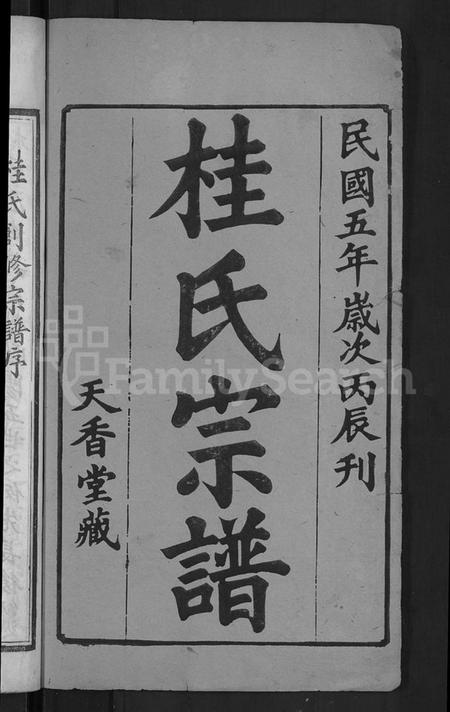 民國五年歲次丙辰刊
桂氏宗譜
天香堂藏
桂氏創修宗譜序
FamilySearch